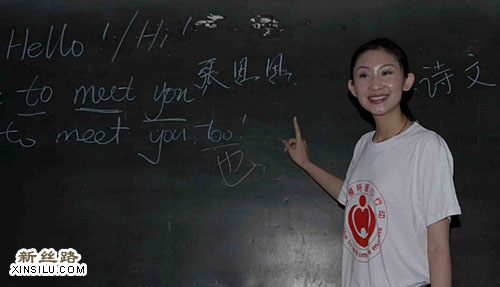 Hello!/Hi!
to meet you 聂思思
诗文
to meet you, too!
也
模特爱心行动
新丝路
XINSILU.COM